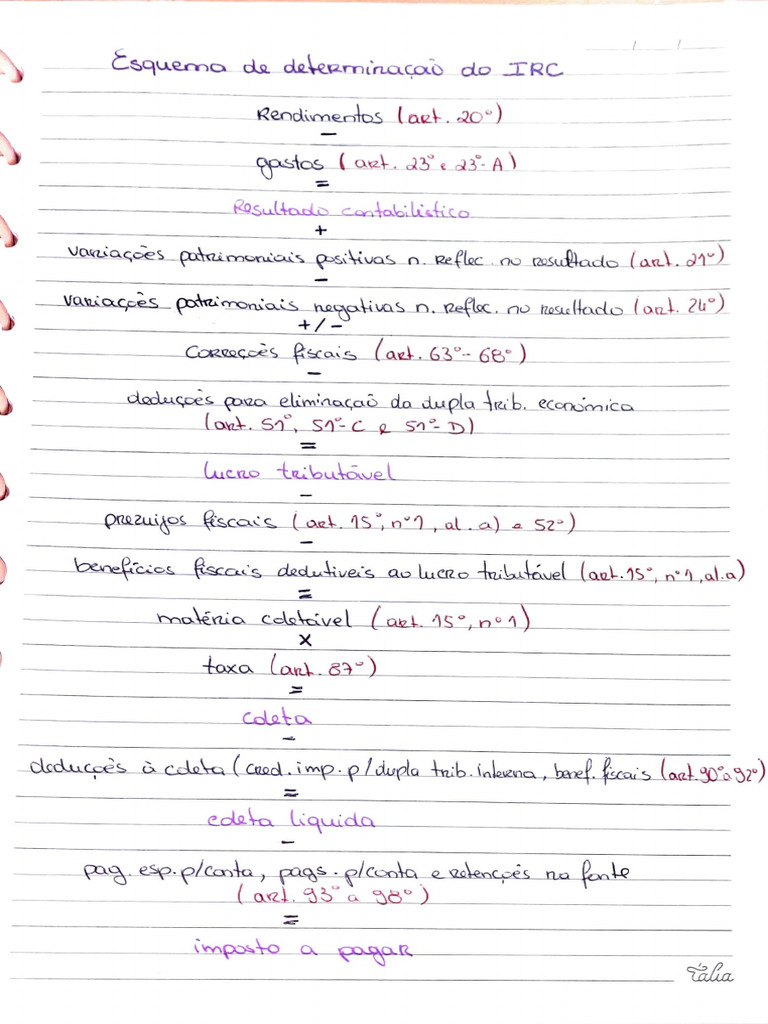 Esquema de determinação do IRC
Rendimentos (art. 20º)
-
gastos (art. 23º e 23º-A)
=
Resultado contabilístico
+
variações patrimoniais positivas n. Reflec. no resultado (art. 21º)
-
variações patrimoniais negativas n. Reflec. no resultado (art. 24º)
+/-
Correções fiscais (art. 63º - 68º)
-
deduções para eliminação da dupla trib. económica
(art. 51º, 51º-C e 51º-D)
=
lucro tributável
-
prezuijos fiscais (art. 15º, nº1, al. a) e 52º)
-
benefícios fiscais dedutiveis ao lucro tributável (art. 15º, nº1, al. a)
=
matéria coletável (art. 15º, nº1)
x
taxa (art. 87º)
=
coleta
-
deduções à coleta (cred. imp. p/ dupla trib. interna, benef. fiscais (art. 90º a 92º)
=
coleta liquida
-
pag. esp. p/conta, pags. p/conta e retenções na fonte
(art. 93º a 98º)
=
imposto a pagar
tália